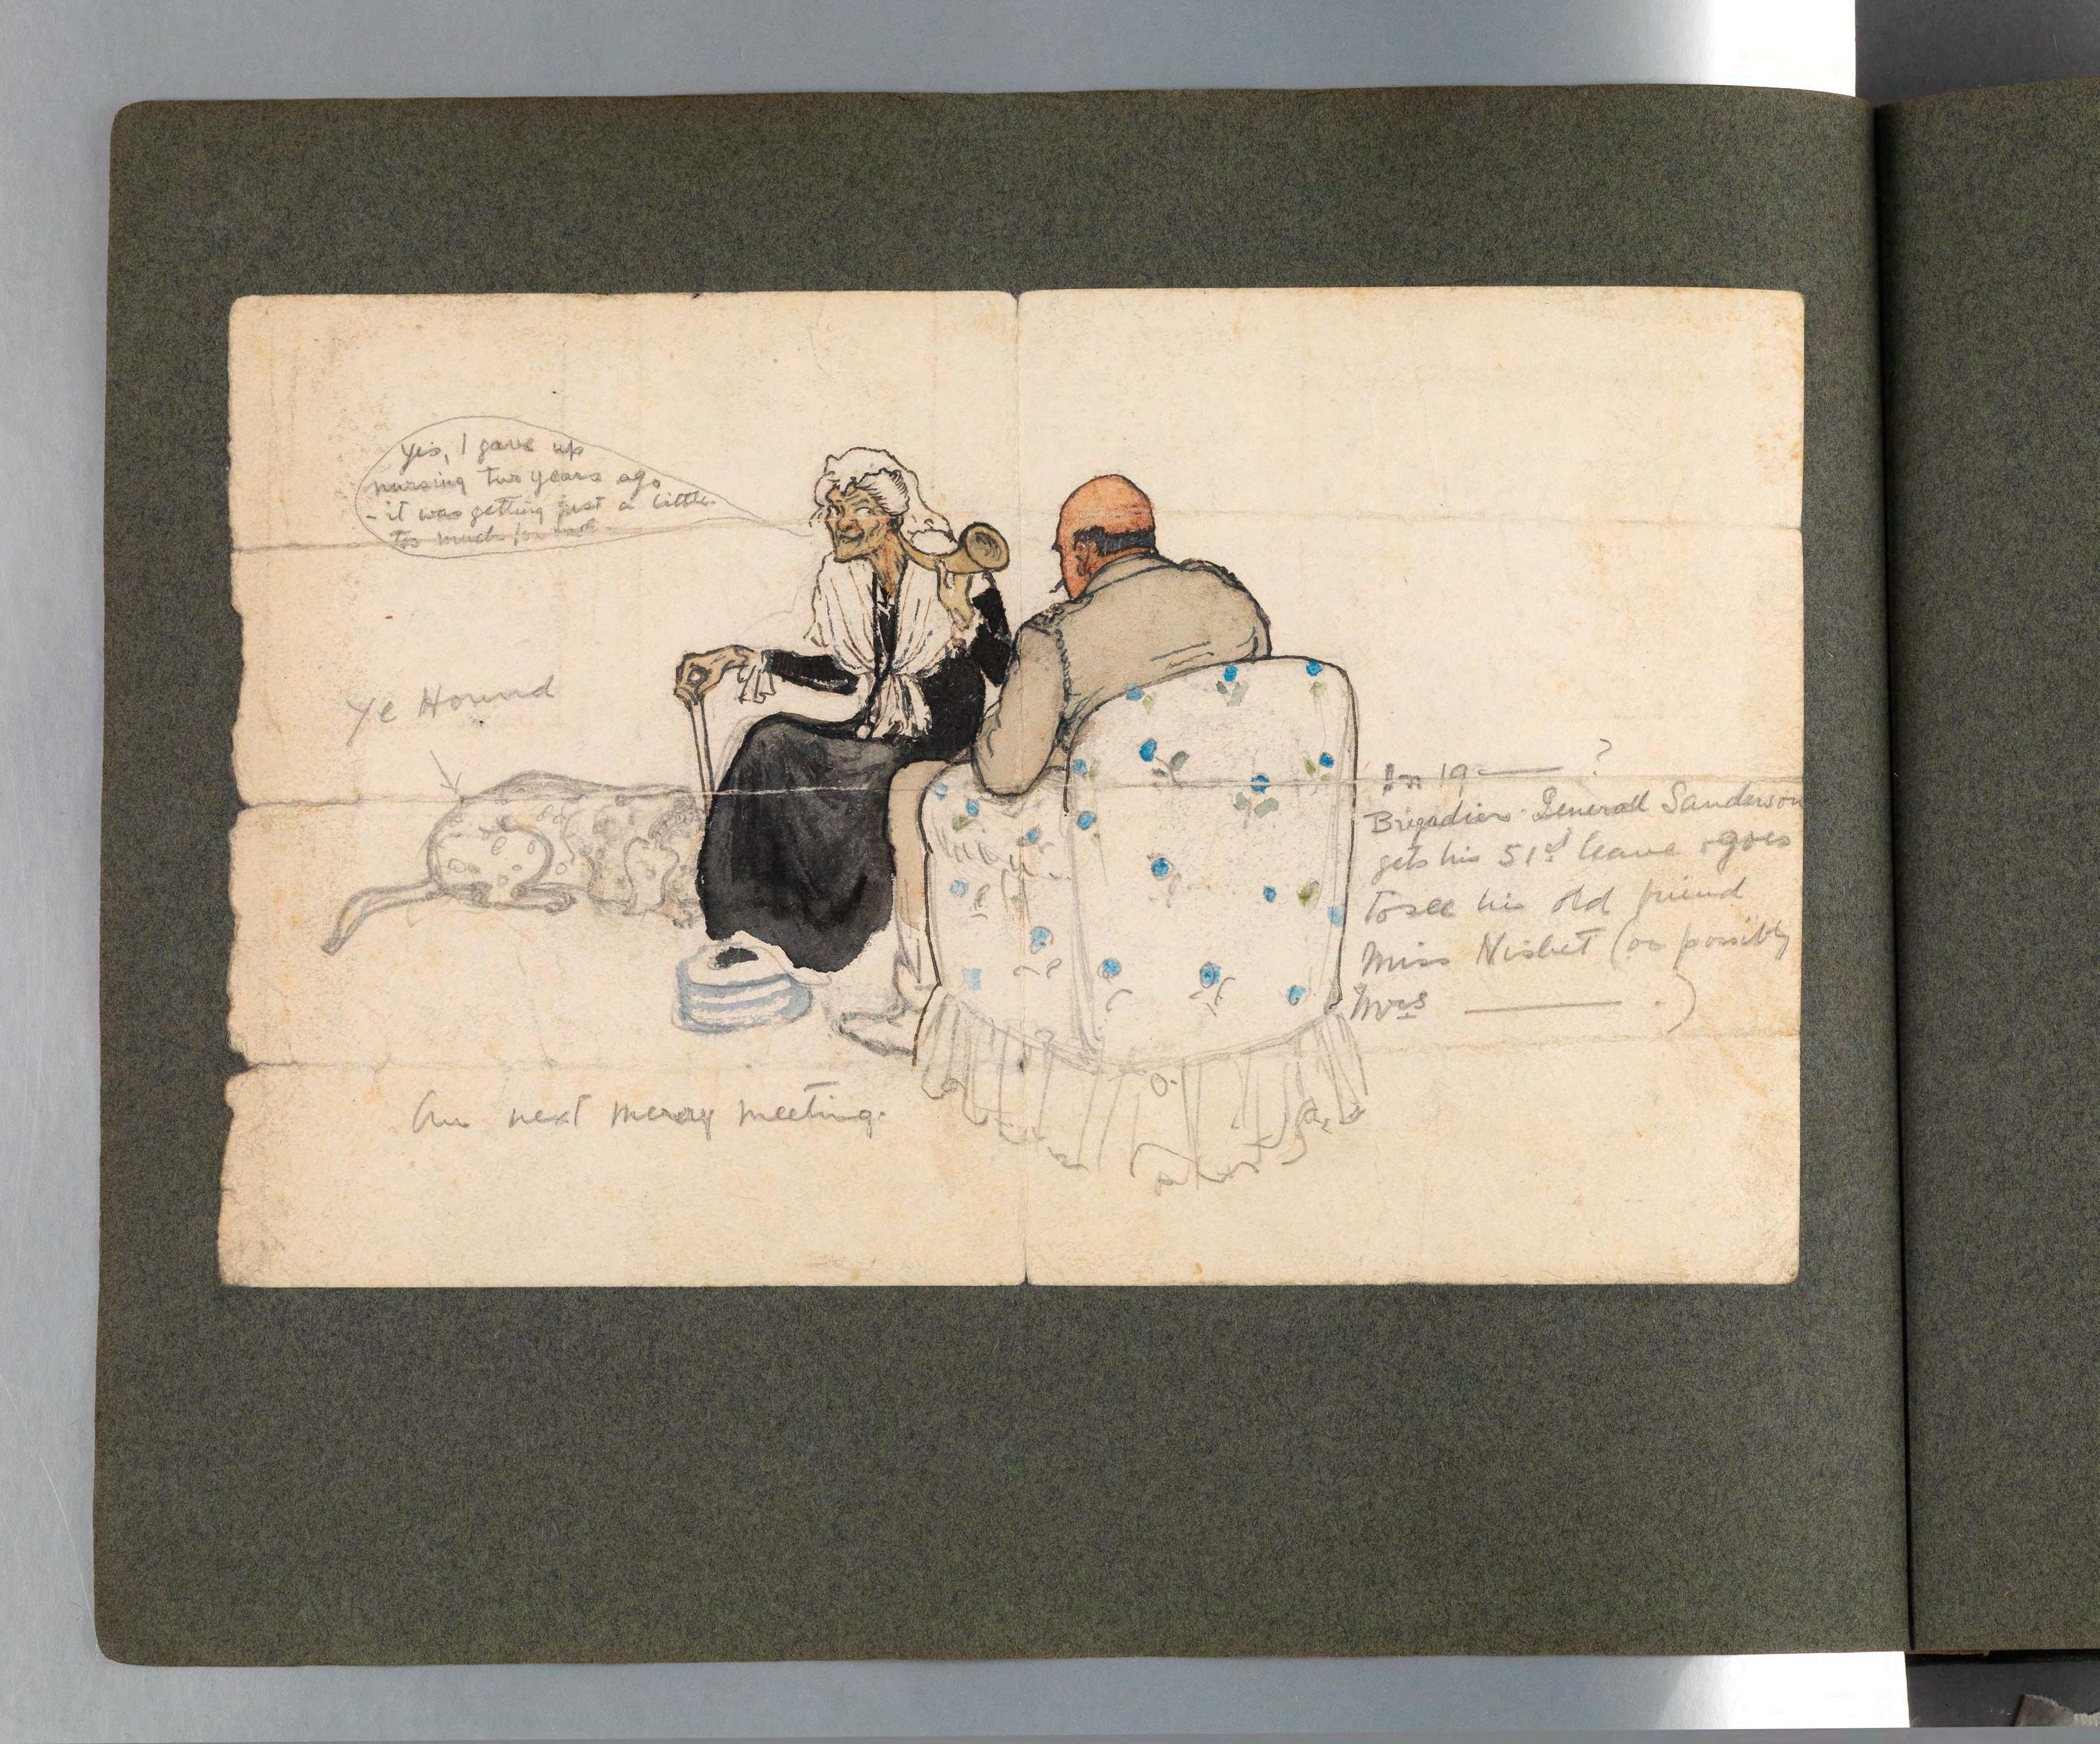 Yes, I gave up
nursing two years ago
- it was getting just a little
too much for me
Ye Hound
In 19—— ?
Brigadier-Generall Sanderson
gets his 51st leave & goes
to see his old friend
Miss Nisbet (or possibly
Mrs ——— .)
Our next merry meeting.